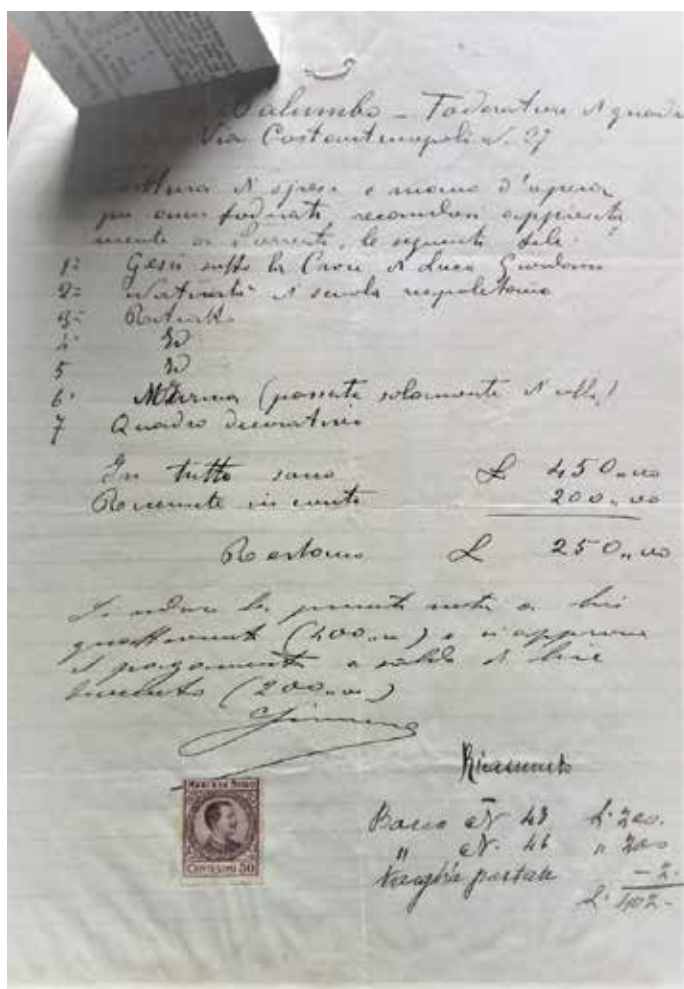 Palumbo – Foderatore di quadri
Via Costantinopoli N. 27
Fattura di spese e mano d'opera
per aver foderati, recandosi apposita
mente a Sorrento, le seguenti tele:
1= Gesù sotto la Croce di Luca Giordano
2= Natività di scuola napoletana
3= Ritratto
4 Id
5 Id
6 Marina (passata solamente di colla)
7 Quadro decorativo
In tutto sono £ 450,,00
Ricevute in conto 200,,00
Restano £ 250,,00
Si riduce la presente nota a lire
quattrocento (400,,00) e si approva
il pagamento a saldo di lire
duecento (200,,00)
Riassunto
MARCA DA BOLLO
CENTESIMI 50
Buono N. 43 L. 200.
" N. 46 " 200
Vaglia postale – 2.
L. 402-